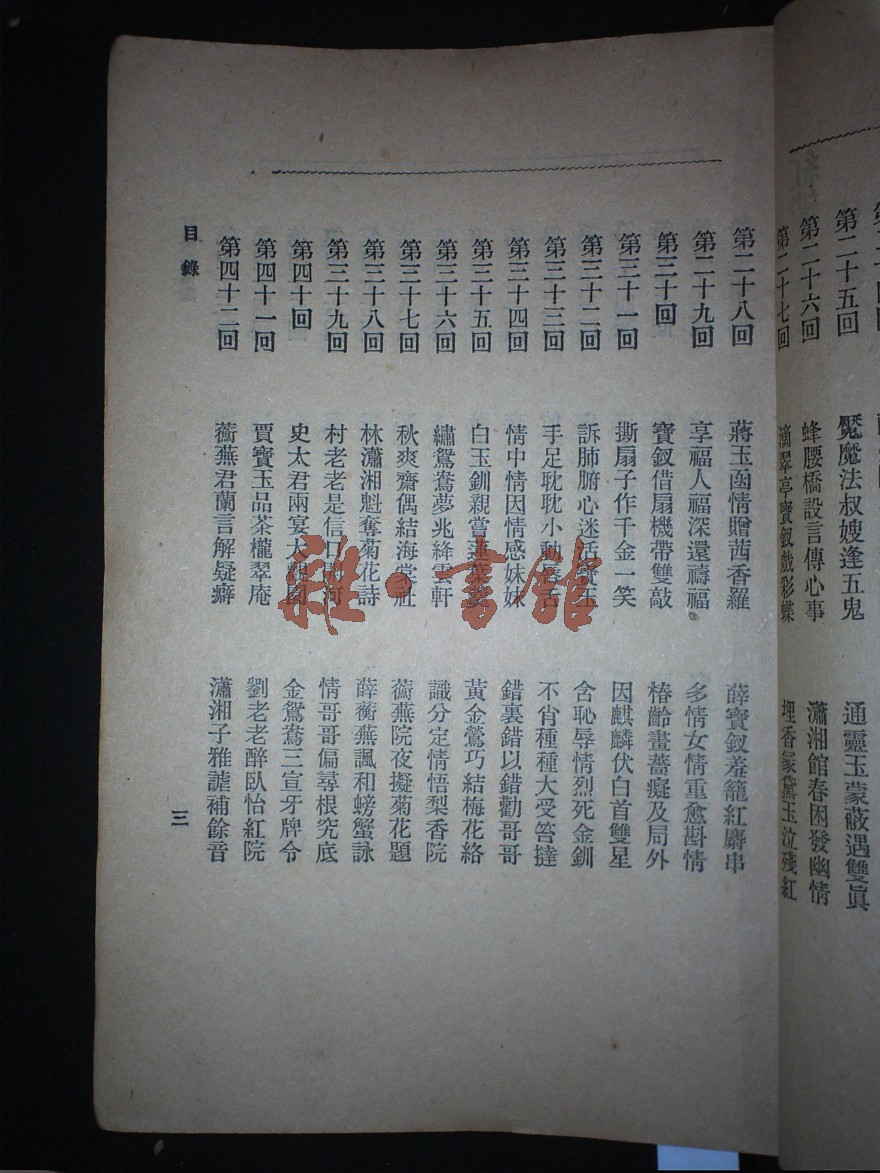 第二十五回 魘魔法叔嫂逢五鬼 通靈玉蒙蔽遇雙眞
第二十六回 蜂腰橋設言傳心事 瀟湘館春困發幽情
第二十七回 滴翠亭寶釵戲彩蝶 埋香冢黛玉泣殘紅
第二十八回 蔣玉函情贈茜香羅 薛寶釵羞籠紅麝串
第二十九回 享福人福深還禱福 多情女情重愈斟情
第三十回 寶釵借扇機帶雙敲 椿齡畫薔癡及局外
第三十一回 撕扇子作千金一笑 因麒麟伏白首雙星
第三十二回 訴肺腑心迷活寶玉 含恥辱情烈死金釧
第三十三回 手足耽耽小動唇舌 不肖種種大受笞撻
第三十四回 情中情因情感妹妹 錯裏錯以錯勸哥哥
第三十五回 白玉釧親嘗蓮葉羹 黃金鶯巧結梅花絡
第三十六回 繡鴛鴦夢兆絳雲軒 識分定情悟梨香院
第三十七回 秋爽齋偶結海棠社 蘅蕪院夜擬菊花題
第三十八回 林瀟湘魁奪菊花詩 薛蘅蕪諷和螃蟹詠
第三十九回 村老老是信口開河 情哥哥偏尋根究底
第四十回 史太君兩宴大觀園 金鴛鴦三宣牙牌令
第四十一回 賈寶玉品茶櫳翠庵 劉老老醉臥怡紅院
第四十二回 蘅蕪君蘭言解疑癖 瀟湘子雅謔補餘音
目錄 三
雜·書館